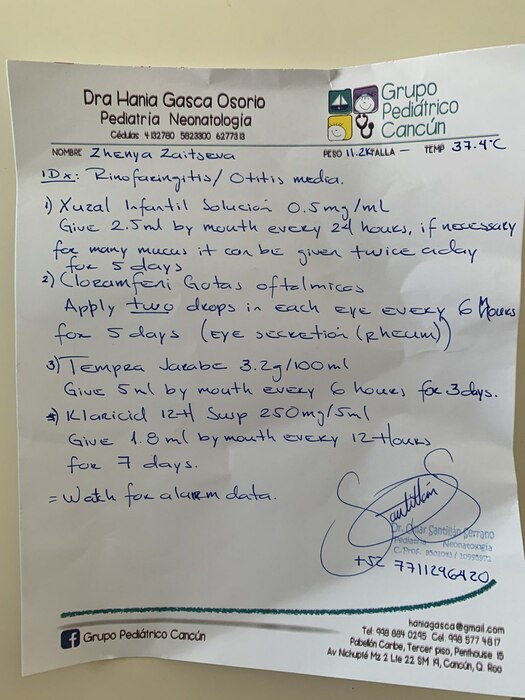 Dra Hania Gasca Osorio
Pediatría Neonatología
Cédulas 4132780 5823300 6277313
Grupo
Pediátrico
Cancún
NOMBRE Zhenya Zaitseva PESO 11.2K TALLA — TEMP 37.4°C
IDx: Rinofaringitis/ Otitis media.
1) Xuzal Infantil Solución 0.5mg/ml
Give 2.5ml by mouth every 24 hours, if necessary
for many mucus it can be given twice aday
for 5 days
2) Cloramfeni Gotas oftalmicas
Apply two drops in each eye every 6 Hours
for 5 days (Eye secretion (rheum))
3) Tempra Jarabe 3.2g/100ml
Give 5ml by mouth every 6 hours for 3 days.
4) Klaricid 12H Susp 250mg/5ml
Give 1.8 ml by mouth every 12 Hours
for 7 days.
= Watch for alarm data.
Santillán
Dr. Omar Santillán Serrano
Pediatría Neonatología
C.Prof.
+52 7711296420
Grupo Pediátrico Cancún
haniagasca@gmail.com
Tel. 998 884 0295 Cel. 998 577 4817
Pabellón Caribe, Tercer piso, Penthouse 15
Av Nichupté Mz 2 Lte 22 SM 19, Cancún, Q. Roo